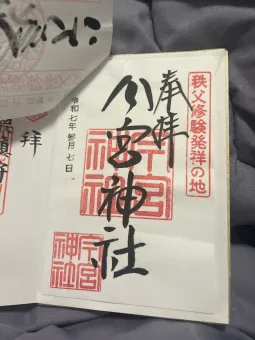 秩父修験発祥の地
奉拝
今宮神社
今宮神社
令和七年卯月七日
今宮神社
拝